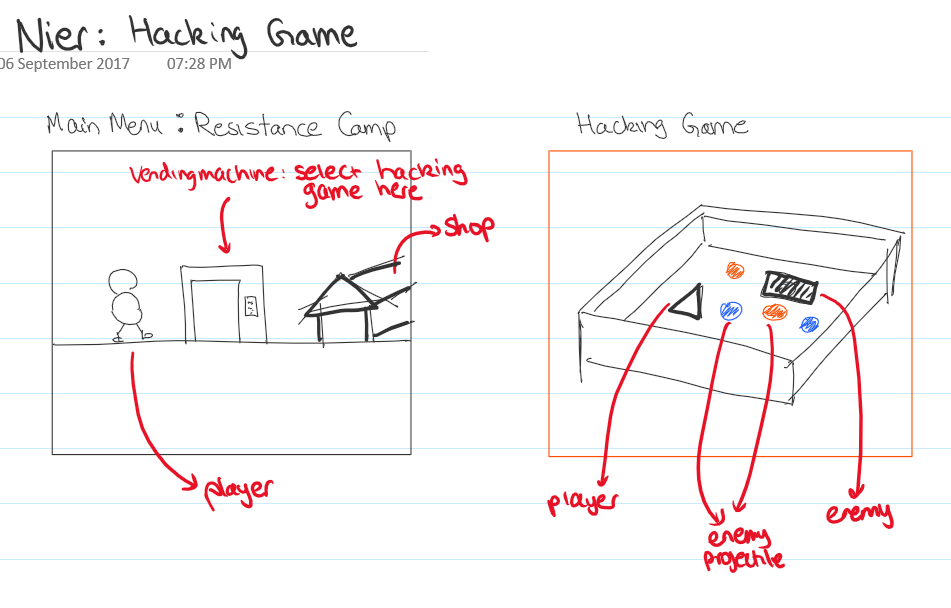 Nier: Hacking Game
06 September 2017 07:28 PM
Main Menu: Resistance Camp
Hacking Game
Vending machine: select hacking
game here
shop
player
player
enemy
projectile
enemy